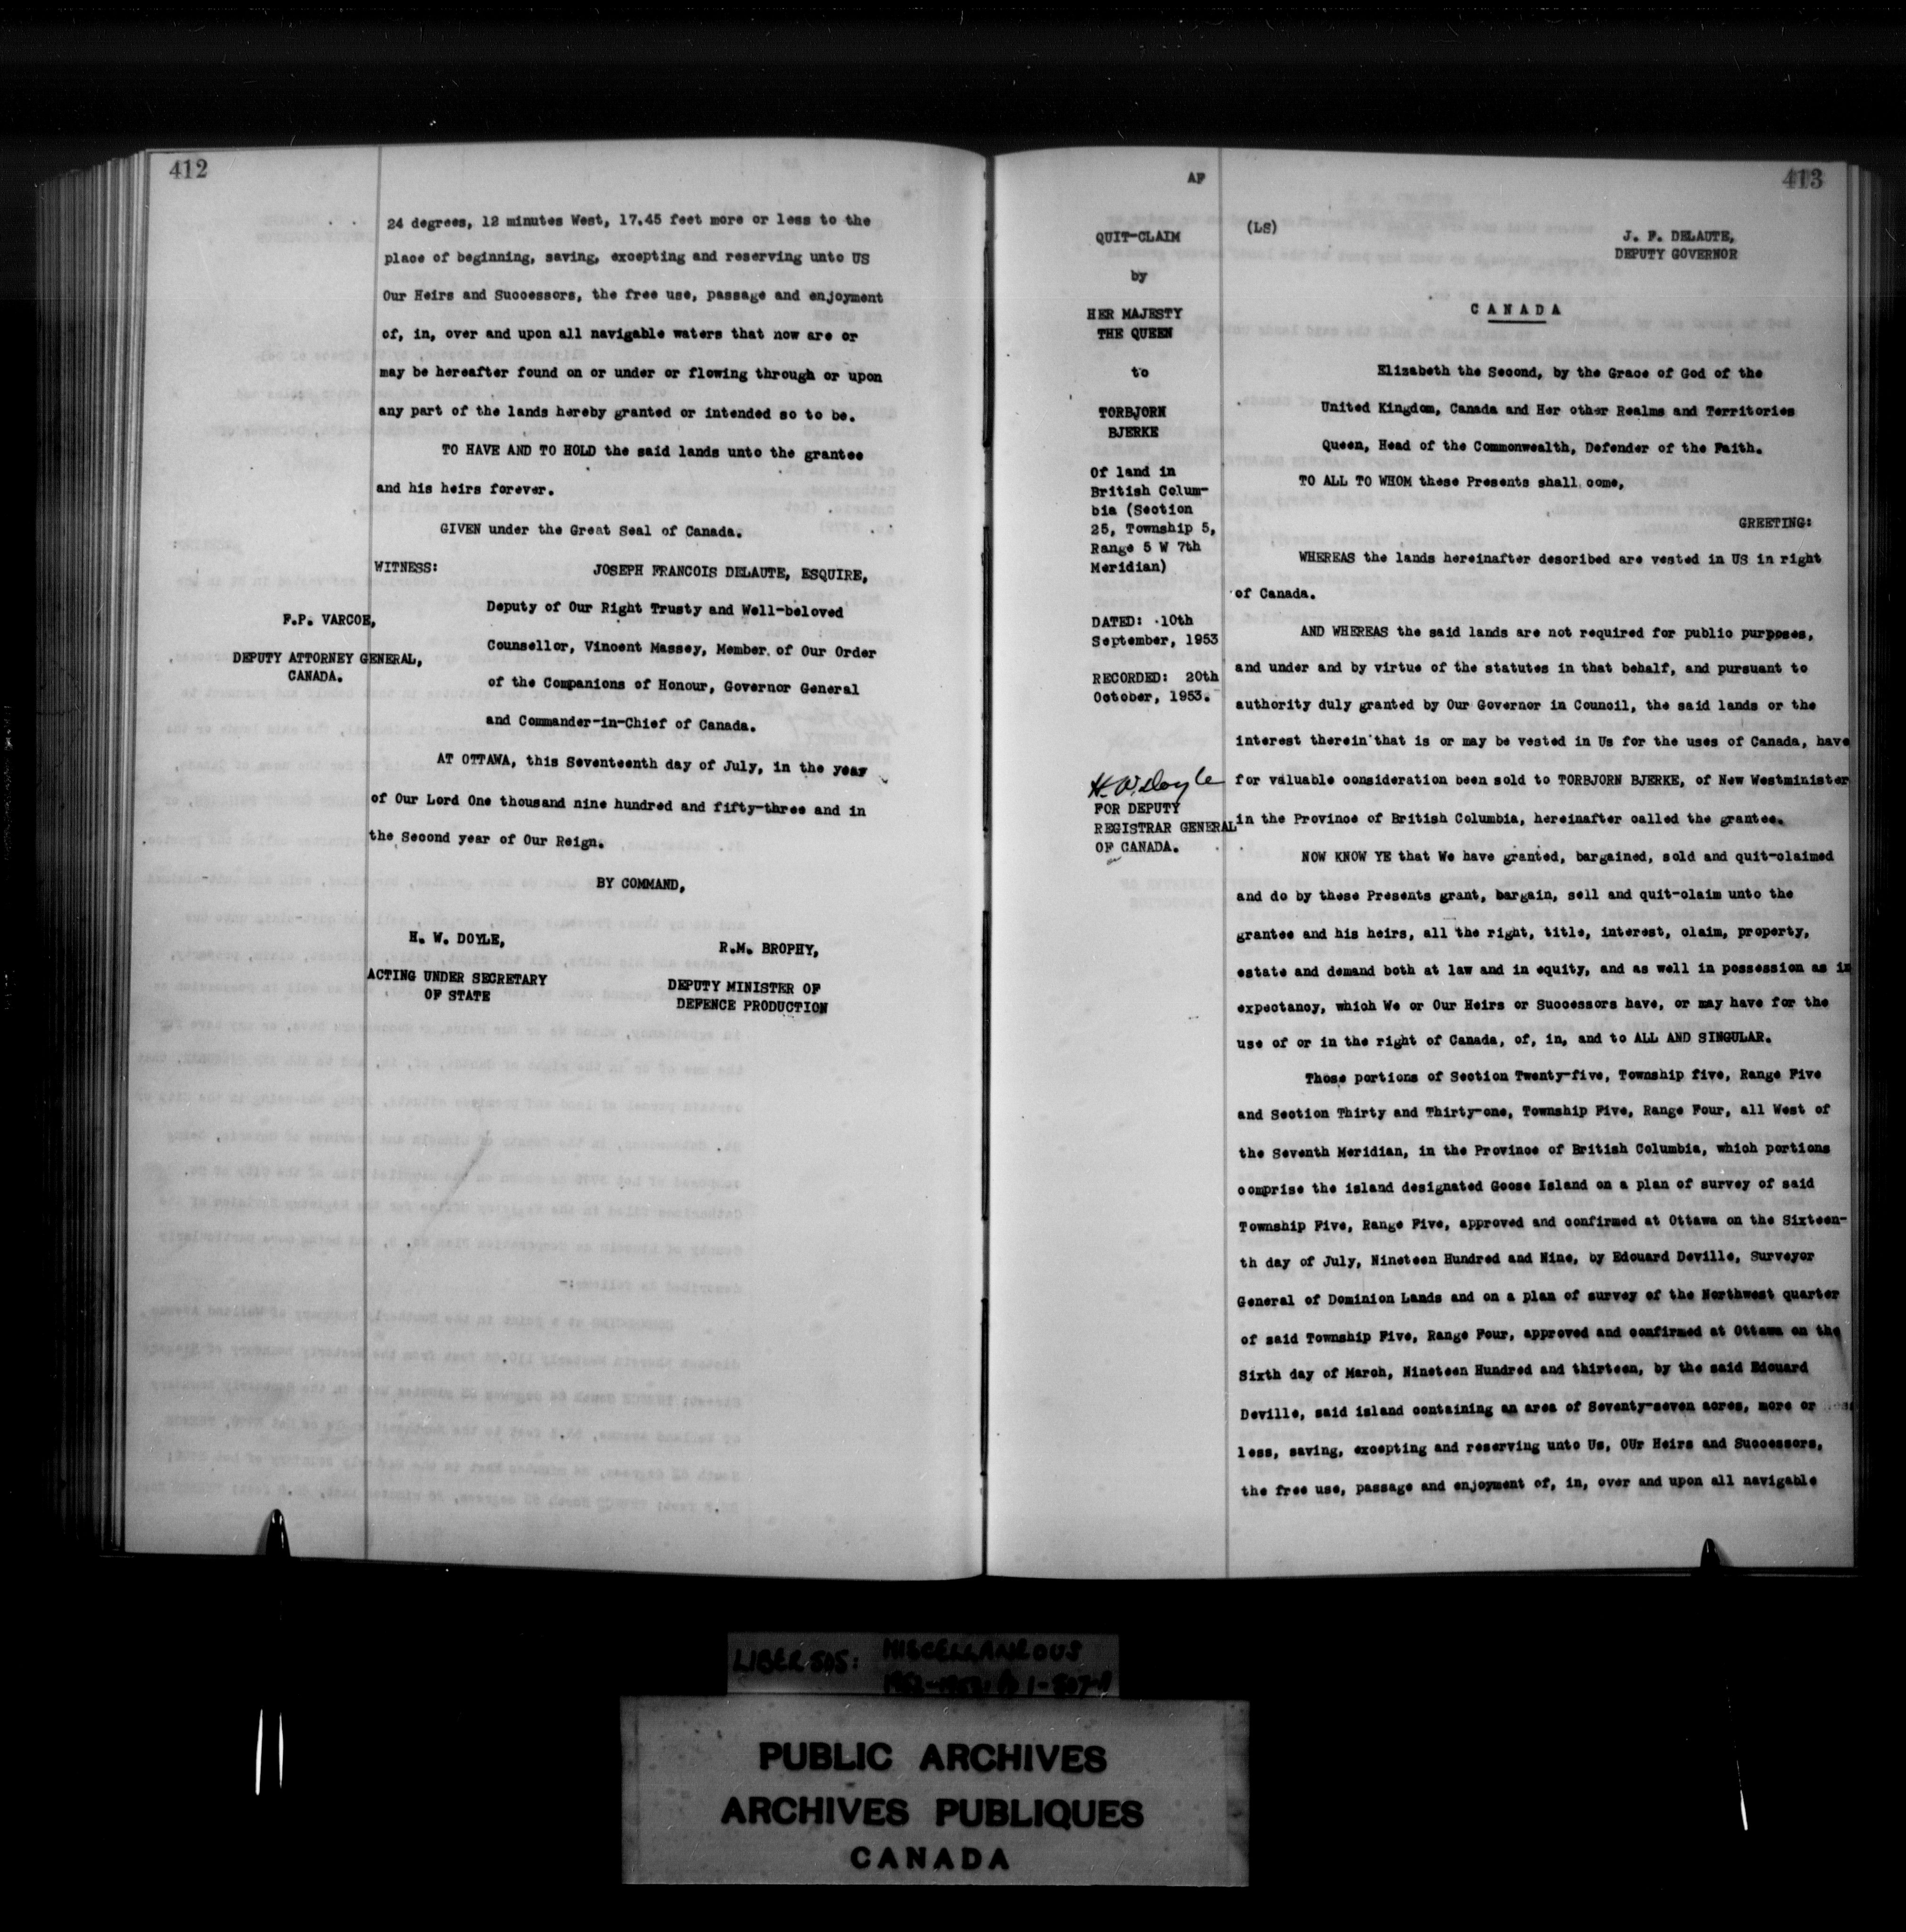 412
24 degrees, 12 minutes West, 17.45 feet more or less to the
place of beginning, saving, excepting and reserving unto US
Our Heirs and Successors, the free use, passage and enjoyment
of, in, over and upon all navigable waters that now are or
may be hereafter found on or under or flowing through or upon
any part of the lands hereby granted or intended so to be.
TO HAVE AND TO HOLD the said lands unto the grantee
and his heirs forever.
GIVEN under the Great Seal of Canada.
WITNESS: JOSEPH FRANCOIS DELAUTE, ESQUIRE,
Deputy of Our Right Trusty and Well-beloved
Counsellor, Vincent Massey, Member of Our Order
of the Companions of Honour, Governor General
and Commander-in-Chief of Canada.
F.P. VARCOE,
DEPUTY ATTORNEY GENERAL,
CANADA.
AT OTTAWA, this Seventeenth day of July, in the year
of Our Lord One thousand nine hundred and fifty-three and in
the Second year of Our Reign.
BY COMMAND,
H. W. DOYLE,
ACTING UNDER SECRETARY
OF STATE
R.M. BROPHY,
DEPUTY MINISTER OF
DEFENCE PRODUCTION
AF
413
QUIT-CLAIM
by
HER MAJESTY
THE QUEEN
to
TORBJORN
BJERKE
Of land in
British Colum-
bia (Section
25, Township 5,
Range 5 W 7th
Meridian)
DATED: 10th
September, 1953
RECORDED: 20th
October, 1953.
H. W. Doyle
FOR DEPUTY
REGISTRAR GENERAL
OF CANADA.
(LS)
J. F. DELAUTE,
DEPUTY GOVERNOR
CANADA
Elizabeth the Second, by the Grace of God of the
United Kingdom, Canada and Her other Realms and Territories
Queen, Head of the Commonwealth, Defender of the Faith.
TO ALL TO WHOM these Presents shall come,
GREETING:
WHEREAS the lands hereinafter described are vested in US in right
of Canada.
AND WHEREAS the said lands are not required for public purposes,
and under and by virtue of the statutes in that behalf, and pursuant to
authority duly granted by Our Governor in Council, the said lands or the
interest therein that is or may be vested in Us for the uses of Canada, have
for valuable consideration been sold to TORBJORN BJERKE, of New Westminister
in the Province of British Columbia, hereinafter called the grantee.
NOW KNOW YE that We have granted, bargained, sold and quit-claimed
and do by these Presents grant, bargain, sell and quit-claim unto the
grantee and his heirs, all the right, title, interest, claim, property,
estate and demand both at law and in equity, and as well in possession as in
expectancy, which We or Our Heirs or Successors have, or may have for the
use of or in the right of Canada, of, in, and to ALL AND SINGULAR.
Those portions of Section Twenty-five, Township five, Range Five
and Section Thirty and Thirty-one, Township Five, Range Four, all West of
the Seventh Meridian, in the Province of British Columbia, which portions
comprise the island designated Goose Island on a plan of survey of said
Township Five, Range Five, approved and confirmed at Ottawa on the Sixteen-
th day of July, Nineteen Hundred and Nine, by Edouard Deville, Surveyor
General of Dominion Lands and on a plan of survey of the Northwest quarter
of said Township Five, Range Four, approved and confirmed at Ottawa on the
Sixth day of March, Nineteen Hundred and thirteen, by the said Edouard
Deville, said island containing an area of Seventy-seven acres, more or
less, saving, excepting and reserving unto Us, OUr Heirs and Successors,
the free use, passage and enjoyment of, in, over and upon all navigable
LIBER 545: MISCELLANEOUS
PUBLIC ARCHIVES
ARCHIVES PUBLIQUES
CANADA